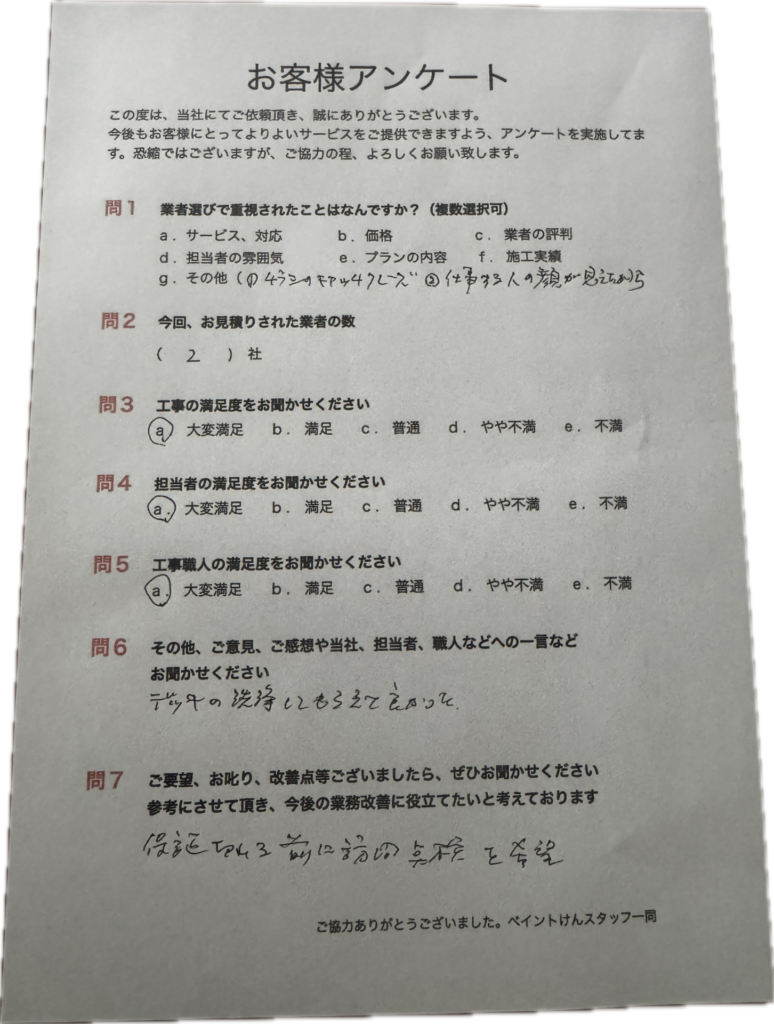 お客様アンケート
この度は、当社にてご依頼頂き、誠にありがとうございます。
今後もお客様にとってよりよいサービスをご提供できますよう、アンケートを実施してま
す。恐縮ではございますが、ご協力の程、よろしくお願い致します。
問1 業者選びで重視されたことはなんですか？（複数選択可）
a．サービス、対応 b．価格 c．業者の評判
d．担当者の雰囲気 e．プランの内容 f．施工実績
g．その他（① チラシのキャッチフレーズ ② 仕事する人の顔が見えたから
問2 今回、お見積りされた業者の数
（ 2 ）社
問3 工事の満足度をお聞かせください
a 大変満足 b． 満足 c． 普通 d． やや不満 e． 不満
問4 担当者の満足度をお聞かせください
a． 大変満足 b． 満足 c． 普通 d． やや不満 e． 不満
問5 工事職人の満足度をお聞かせください
a． 大変満足 b． 満足 c． 普通 d． やや不満 e． 不満
問6 その他、ご意見、ご感想や当社、担当者、職人などへの一言など
お聞かせください
デッキの洗浄してもらえて良かった。
問7 ご要望、お叱り、改善点等ございましたら、ぜひお聞かせください
参考にさせて頂き、今後の業務改善に役立てたいと考えております
保証切れる前に訪問点検を希望
ご協力ありがとうございました。ペイントけんスタッフ一同